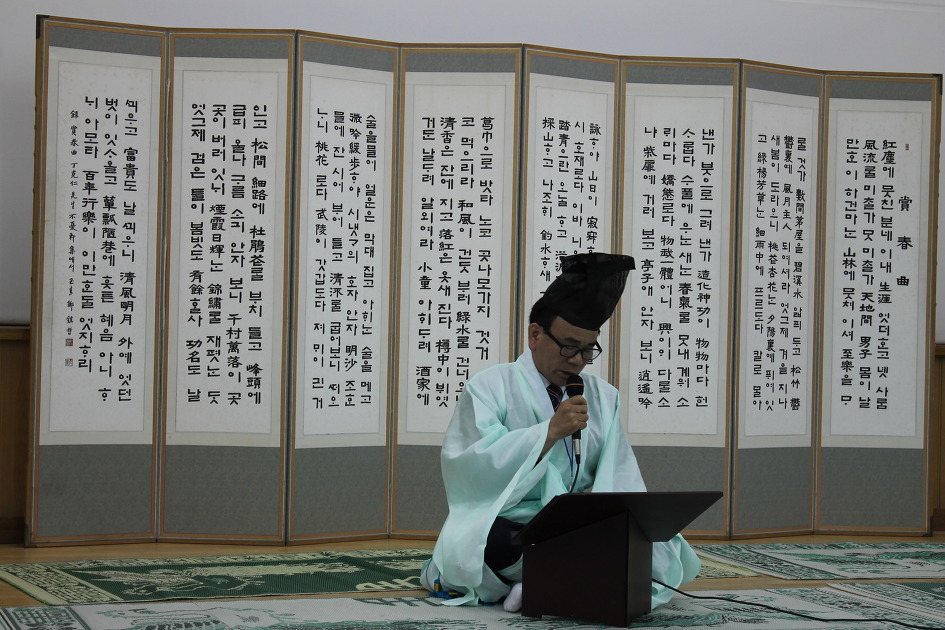 賞春曲
紅塵에 뭇친 분네 이내 生涯 엇더ᄒᆞ고 넷 사ᄅᆞᆷ
風流ᄅᆞᆯ 미ᄎᆞᆯ가 못 미ᄎᆞᆯ가 天地間 男子 몸이 날
만ᄒᆞᆫ 이 하건마ᄂᆞᆫ 山林에 뭇쳐 이셔 至樂을 ᄆᆞ
ᄅᆞᆯ 것가 數間茅屋을 碧溪水 앏픠 두고 松竹 鬱
鬱裏예 風月主人 되여셔라 엇그제 겨을 지나
새봄이 도라오니 桃花杏花ᄂᆞᆫ 夕陽裏예 퓌여 잇
고 綠楊芳草ᄂᆞᆫ 細雨中에 프르도다 칼로 ᄆᆞᆯ아
낸가 붓으로 그려 낸가 造化神功이 物物마다 헌
ᄉᆞ롭다 수풀에 우ᄂᆞᆫ 새ᄂᆞᆫ 春氣ᄅᆞᆯ ᄆᆞᆺ내 계워 소
ᄅᆡ마다 嬌態로다 物我一體어니 興이ᄋᆡ 다ᄅᆞᆯ소
냐 柴扉예 거러 보고 亭子애 안자 보니 逍遙吟
詠ᄒᆞ야 山日이 寂寂ᄒᆞ
시 호재로다 이바 니웃
踏青으란 오ᄂᆞᆯ ᄒᆞ고
採山ᄒᆞ고 나조ᄒᆡ 釣水ᄒᆞ새
葛巾으로 밧타 노코 곳나모가지 것거
코 먹으리라 和風이 건ᄃᆞᆺ 부러 綠水ᄅᆞᆯ 건너오
清香은 잔에 지고 落紅은 옷새 진다 樽中이 뷔엿
거ᄃᆞᆫ 날ᄃᆞ려 알외여라 小童 아ᄒᆡᄃᆞ려 酒家에
술을 들어 얼운은 막대 집고 아ᄒᆡᄂᆞᆫ 술을 메고
微吟緩步ᄒᆞ야 시냇ᄀᆞ의 호자 안자 明沙 조ᄒᆞᆫ
믈에 잔 시어 부어 들고 清流ᄅᆞᆯ 굽어보니 ᄯᅥ오
ᄂᆞ니 桃花 로다 武陵이 갓갑도다 져 ᄆᆡ이 긘 거
인고 松間 細路에 杜鵑花ᄅᆞᆯ 부치 들고 峰頭에
급피 올나 구름 소긔 안자 보니 千村萬落이 곳
곳이 버러 잇ᄂᆡ 煙霞日輝ᄂᆞᆫ 錦繡ᄅᆞᆯ 재폇ᄂᆞᆫ ᄃᆞᆺ
엇그제 검은 들이 봄빗도 有餘ᄒᆞᆯ샤 功名도 날
ᄭᅴ우고 富貴도 날 ᄭᅴ우니 清風明月 外예 엇던
벗이 잇ᄉᆞ올고 簞瓢陋巷에 훗튼 혜음 아니 ᄒᆞ
ᄂᆡ 아모타 百年行樂이 이만ᄒᆞᆫᄃᆞᆯ 엇지ᄒᆞ리
錄 賞春曲 丁克仁先生 不憂軒集에서